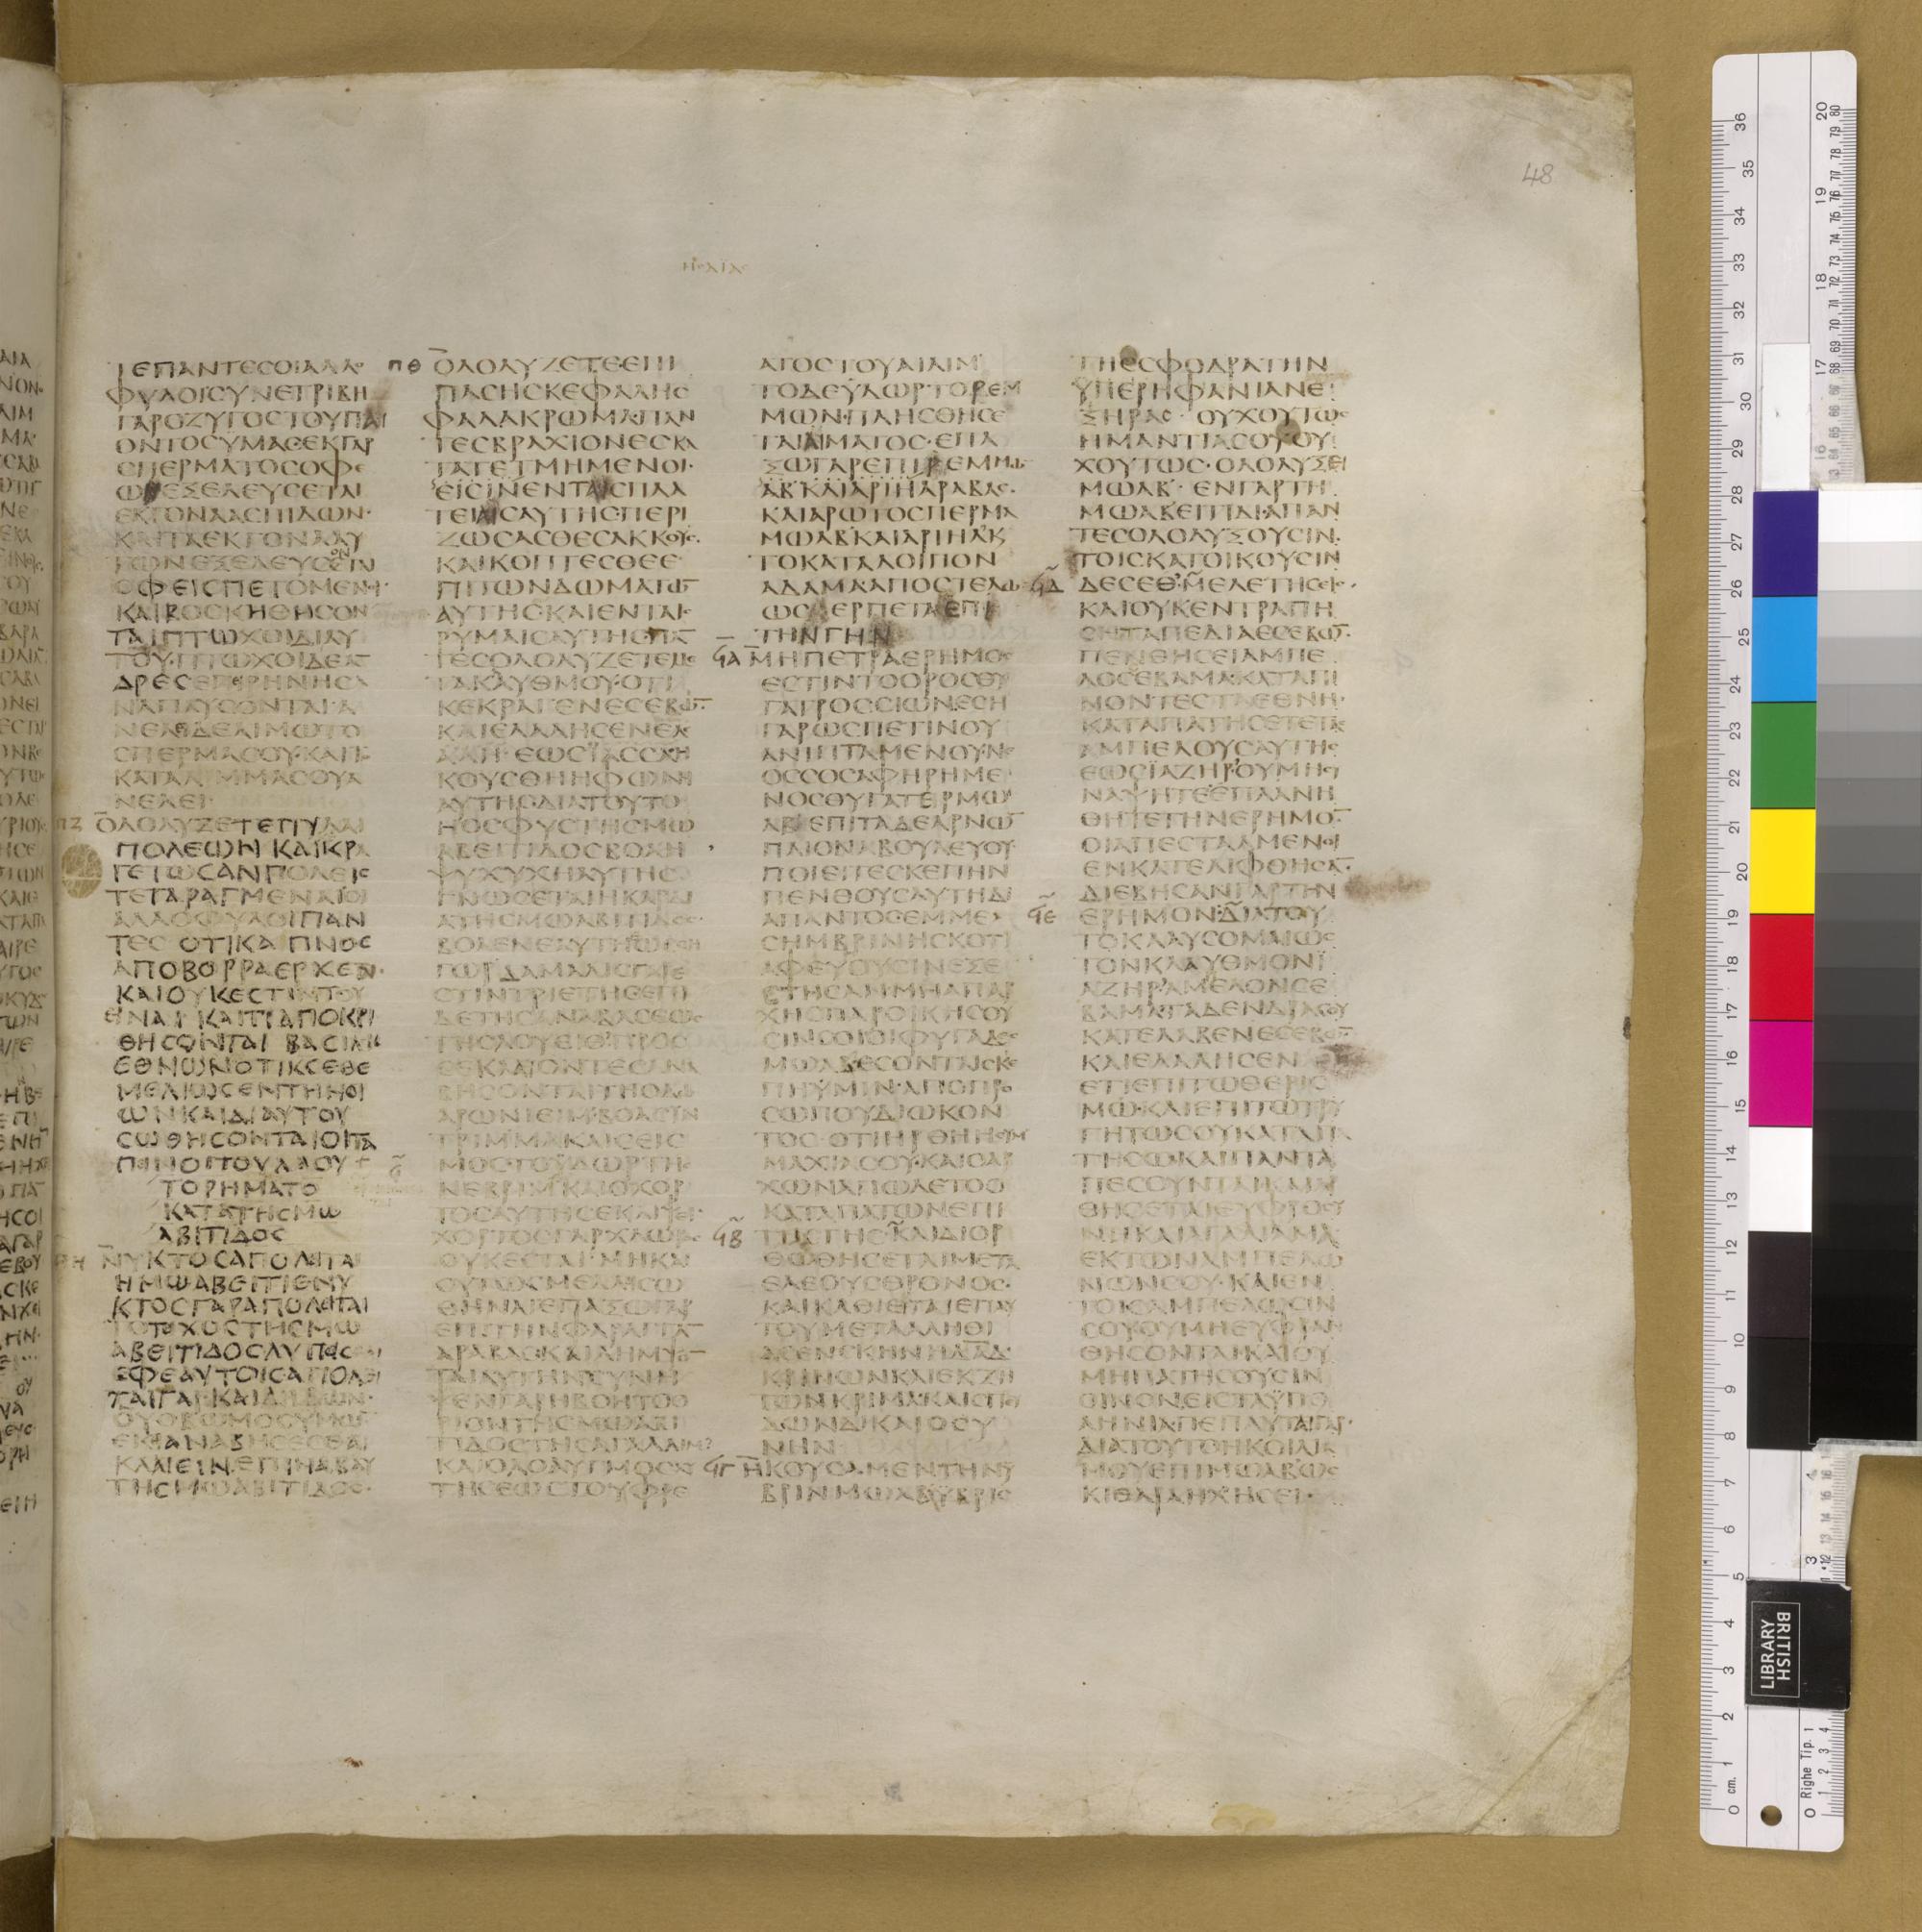 48
ΗϹΑΙΑϹ
ΤΕΠΑΝΤΕϹΟΙΑΛΛΟ
ΦΥΛΟΙϹΥΝΕΤΡΙΒΗ
ΓΑΡΟΖΥΓΟϹΤΟΥΠΑΙ
ΟΝΤΟϹΥΜΑϹΕΚΓΑΡ
ϹΠΕΡΜΑΤΟϹΟΦΕ
ΩϹΕΞΕΛΕΥϹΕΤΑΙ
ΕΚΓΟΝΑΑϹΠΙΔΩΝ
ΚΑΙΤΑΕΚΓΟΝΑΑΥ
ΤΩΝΕΞΕΛΕΥϹΟΝ
ΟΦΕΙϹΠΕΤΟΜΕΝΟΙ
ΚΑΙΒΟϹΚΗΘΗϹΟΝ
ΤΑΙΠΤΩΧΟΙΔΙΑΥ
ΤΟΥ·ΠΤΩΧΟΙΔΕΑΝ
ΔΡΕϹΕΠΙΡΗΝΗϹΑ
ΝΑΠΑΥϹΟΝΤΑΙ·Α
ΝΕΛΙΔΕΛΙΜΩΤΟ
ϹΠΕΡΜΑϹΟΥ·ΚΑΙΤΟ
ΚΑΤΑΛΙΜΜΑϹΟΥΑ
ΝΕΛΕΙ
ΠΖ ΟΛΟΛΥΖΕΤΕΠΥΛΑΙ
ΠΟΛΕΩΝ ΚΑΙΚΡΑ
ΓΕΤΩϹΑΝΠΟΛΕΙϹ
ΤΕΤΑΡΑΓΜΕΝΑΙΟΙ
ΑΛΛΟΦΥΛΟΙΠΑΝ
ΤΕϹ ΟΤΙΚΑΠΝΟϹ
ΑΠΟΒΟΡΡΑΕΡΧΕΤ
ΚΑΙΟΥΚΕϹΤΙΝΤΟΥ
ΕΙΝΑΙ ΚΑΙΤΙΑΠΟΚΡΙ
ΘΗϹΟΝΤΑΙ ΒΑϹΙΛΙϹ
ΕΘΝΩΝΟΤΙΚϹΕΘΕ
ΜΕΛΙΩϹΕΝΤΗΝϹΙ
ΩΝΚΑΙΔΙΑΥΤΟΥ
ϹΩΘΗϹΟΝΤΑΙΟΙΤΑ
ΠΙΝΟΙΤΟΥΛΑΟΥ
ΤΟΡΗΜΑΤΟ
ΚΑΤΑΤΗϹΜΩ
ΑΒΙΤΙΔΟϹ
ΠΗ ΝΥΚΤΟϹΑΠΟΛΙΤΑΙ
ΗΜΩΑΒΕΙΤΙϹΝΥ
ΚΤΟϹΓΑΡΑΠΟΛΕΙΤΑΙ
ΤΟΤΙΧΟϹΤΗϹΜΩ
ΑΒΕΙΤΙΔΟϹΛΥΠΕΙϹ
ΕΦΕΑΥΤΟΙϹΑΠΟΛΕΙ
ΤΑΙΓΑΡ·ΚΑΙΔΗΒΩΝ·
ΟΥΟΒΩΜΟϹΥΜΩΝ
ΕΚΕΙΑΝΑΒΗϹΕϹΘΑΙ
ΚΛΑΙΕΙΝΕΠΙΝΑΒΑΥ
ΤΗϹΜΩΑΒΙΤΙΔΟϹ
ΠΘ ΟΛΟΛΥΖΕΤΕΕΠΙ
ΠΑϹΗϹΚΕΦΑΛΗϹ
ΦΑΛΑΚΡΩΜΑΠΑΝ
ΤΕϹΒΡΑΧΙΟΝΕϹΚΑ
ΤΑΤΕΤΜΗΜΕΝΟΙ·
ΕΙϹΙΝΕΝΤΑΙϹΠΛΑ
ΤΕΙΑΙϹΑΥΤΗϹ·ΠΕΡΙ
ΖΩϹΑϹΘΕϹΑΚΚΟΥϹ
ΚΑΙΚΟΠΤΕϹΘΕΕ
ΠΙΤΩΝΔΩΜΑΤΩΝ
ΑΥΤΗϹ·ΚΑΙΕΝΤΑΙϹ
ΡΥΜΑΙϹΑΥΤΗϹΠΑΝ
ΤΕϹΟΛΟΛΥΖΕΤΕΜΕ
ΤΑΚΛΥΘΜΟΥ·ΟΤΙ
ΚΕΚΡΑΓΕΝΕϹΕΒΩΝ
ΚΑΙΕΛΑΛΗϹΕΝΕΛΕ
ΑΛΗ·ΕΩϹΪΑϹϹΑΗ
ΚΟΥϹΘΗΗΦΩΝΗ
ΑΥΤΗϹΔΙΑΤΟΥΤΟ
ΗΟϹΦΥϹΤΗϹΜΩ
ΑΒΕΙΤΙΔΟϹΒΟΑΗ
ΨΥΧΥΧΗΑΥΤΗϹ
ΓΝΩϹΕΤΑΙΗΚΑΡΔΙ
ΑΤΗϹΜΩΑΒΙΤΙΔΟϹ
ΒΟΑΕΝΕΑΥΤΗΕΩϹϹΗ
ΓΩΡ·ΔΑΜΑΛΙϹΓΑΡΕ
ϹΤΙΝΤΡΙΕΤΗϹΕΠΙ
ΔΕΤΗϹΑΝΑΒΑϹΕΩϹ
ΤΗϹΛΟΥΕΙΘΠΡΟϹ
ϹΕΚΛΑΙΟΝΤΕϹΑΝΑ
ΒΗϹΟΝΤΑΙΤΗΟΔΩ
ΑΡΩΝΙΕΙΜ·ΒΟΑϹΥΝ
ΤΡΙΜΜΑΚΑΙϹΕΙϹ
ΜΟϹΤΟΥΔΩΡΤΗϹ
ΝΕΒΡΙΜΚΑΙΟΧΟΡ
ΤΟϹΑΥΤΗϹΕΚΛΙΨΕΙ
ΧΟΡΤΟϹΓΑΡΧΛΩΡΟϹ
ΟΥΚΕϹΤΑΙ·ΜΗΚΑΙ
ΟΥΤΩϹΜΕΛΛΙϹΩ
ΘΗΝΑΙΕΠΑΞΩΓΑΡ
ΕΠΙΤΗΝΦΑΡΑΓΓΑΝ
ΑΡΑΒΑϹΚΑΙΛΗΜΨΟΝ
ΤΑΙΑΥΤΗΝϹΥΝΗ
ΨΕΝΓΑΡΗΒΟΗΤΟΟ
ΡΙΟΝΤΗϹΜΩΑΒΙ
ΤΙΔΟϹΤΗϹΑΓΑΛΛΙΜ
ΚΑΙΟΛΟΛΥΓΜΟϹΑΥ
ΤΗϹΕΩϹΤΟΥΦΡΕ
ΑΤΟϹΤΟΥΑΙΛΙΜ
ΤΟΔΕΥΔΩΡ·ΤΟΡΕΜ
ΜΩΝ·ΠΛΗϹΘΗϹΕ
ΤΑΙΑΙΜΑΤΟϹ·ΕΠΑ
ΞΩΓΑΡΕΠΙΡΕΜΜΩ
ΑΒΚΑΙΑΡΙΗΑΡΑΒΑϹ·
ΚΑΙΑΡΩΤΟϹΠΕΡΜΑ
ΜΩΑΒΚΑΙΑΡΙΗΛΚ
ΤΟΚΑΤΑΛΟΙΠΟΝ
ΑΔΑΜΑΑΠΟϹΤΕΛΩ
ΩϹΑΕΡΠΕΤΑΕΠΙ
ΤΗΝΓΗΝ
ϤΑ ΜΗΠΕΤΡΑΕΡΗΜΟϹ
ΕϹΤΙΝΤΟΟΡΟϹΘΥ
ΓΑΤΡΟϹϹΙΩΝΕϹΗ
ΓΑΡΩϹΠΕΤΙΝΟΥ
ΑΝΙΠΤΑΜΕΝΟΥΝΕ
ΟϹϹΟϹΑΦΗΡΗΜΕ
ΝΟϹΘΥΓΑΤΕΡΜΩ
ΑΒ·ΕΠΙΤΑΔΕΑΡΝΩΝ
ΠΛΙΟΝΑΒΟΥΛΕΥΟΥ
ΠΟΙΕΙΤΕϹΚΕΠΗΝ
ΠΕΝΘΟΥϹΑΥΤΗΔΙ
ΑΠΑΝΤΟϹΕΜΜΕ
ϹΗΜΒΡΙΝΗϹΚΟΤΙ
ΑΦΕΥΓΟΥϹΙΝΕΞΕ
ϹΤΗϹΑΝΜΗΑΠΑΡ
ΧΗϹΠΑΡΟΙΚΗϹΟΥ
ϹΙΝϹΟΙΟΙΦΥΓΑΔΕϹ
ΜΩΑΒΕϹΟΝΤΑΙϹΚΕ
ΠΗΥΜΙΝ·ΑΠΟΠΡΟ
ϹΩΠΟΥΔΙΩΚΟΝ
ΤΟϹ·ΟΤΙΗΡΘΗΗϹΥΜ
ΜΑΧΙΑϹΟΥ·ΚΑΙΟΑΡ
ΧΩΝΑΠΩΛΕΤΟΟ
ΚΑΤΑΠΑΤΩΝΕΠΙ
ϤΒ ΤΗϹΓΗϹΚΑΙΔΙΟΡ
ΘΩΘΗϹΕΤΑΙΜΕΤΑ
ΕΛΕΟΥϹΘΡΟΝΟϹ·
ΚΑΙΚΑΘΙΕΙΤΑΙΕΠΑΥ
ΤΟΥΜΕΤΑΑΛΗΘΙ
ΑϹΕΝϹΚΗΝΗΔΑΔ·
ΚΡΙΝΩΝΚΑΙΕΚΖΗ
ΤΩΝΚΡΙΜΑΚΑΙϹΠΕΥ
ΔΩΝΔΙΚΑΙΟϹΥ
ΝΗΝ
ϤΓ ΗΚΟΥϹΑΜΕΝΤΗΝΥ
ΒΡΙΝΜΩΑΒΥΒΡΙϹ
ΤΗϹϹΦΟΔΡΑΤΗΝ
ΥΠΕΡΗΦΑΝΙΑΝΕ
ΞΗΡΑϹ·ΟΥΧΟΥΤΩϹ
ΗΜΑΝΤΙΑϹΟΥΟΥ
ΧΟΥΤΩϹ·ΟΛΟΛΥΞΕΙ
ΜΩΑΒ·ΕΝΓΑΡΤΗ
ΜΩΑΒΕΙΤΙΔΙ·ΑΠΑΝ
ΤΕϹΟΛΟΛΥΞΟΥϹΙΝ·
ΤΟΙϹΚΑΤΟΙΚΟΥϹΙΝ
ϤΔ ΔΕϹΕΘ·ΜΕΛΕΤΗϹΕΙϹ·
ΚΑΙΟΥΚΕΝΤΡΑΠΗ
ϹΗΤΑΠΕΔΙΑΕϹΕΒΩΝ·
ΠΕΝΘΗϹΕΙΑΜΠΕ
ΛΟϹϹΕΒΑΜΑ·ΚΑΤΑΠΙ
ΝΟΝΤΕϹΤΑΕΘΝΗ·
ΚΑΤΑΠΑΤΗϹΕΤΕΤΑϹ
ΑΜΠΕΛΟΥϹΑΥΤΗϹ
ΕΩϹΪΑΖΗΡ·ΟΥΜΗϹΥ
ΝΑΨΗΤΕΕΠΛΑΝΗ
ΘΗΤΕΤΗΝΕΡΗΜΟΝ
ΟΙΑΠΕϹΤΑΛΜΕΝΟΙ
ΕΝΚΑΤΕΛΙΦΘΗϹΑΝ·
ΔΙΕΒΗϹΑΝΓΑΡΤΗΝ
ϤΕ ΕΡΗΜΟΝ·ΔΙΑΤΟΥ
ΤΟΚΛΑΥϹΟΜΑΙΩϹ
ΤΟΝΚΛΑΥΘΜΟΝΪ
ΑΖΗΡ·ΑΜΠΕΛΟΝϹΕ
ΒΑΜΑ·ΤΑΔΕΝΔΡΑϹΟΥ
ΚΑΤΕΛΑΒΕΝΕϹΕΒΩΝ
ΚΑΙΕΛΑΛΗϹΕΝ
ΕΤΙΕΠΙΤΩΘΕΡΙϹ
ΜΩ·ΚΑΙΕΠΙΤΩΤΡΥ
ΓΗΤΩϹΟΥΚΑΤΑΠΑ
ΤΗϹΩΚΑΙΠΑΝΤΑ
ΠΕϹΟΥΝΤΑΙΚΑΙΑΡ
ΘΗϹΕΤΑΙΕΥΦΡΟϹΥ
ΝΗΚΑΙΑΓΑΛΛΙΑΜΑ
ΕΚΤΩΝΑΜΠΕΛΩ
ΝΩΝϹΟΥ·ΚΑΙΕΝ
ΤΟΙϹΑΜΠΕΛΩϹΙΝ
ϹΟΥΟΥΜΗΕΥΦΡΑΝ
ΘΗϹΟΝΤΑΙ·ΚΑΙΟΥ
ΜΗΠΑΤΗϹΟΥϹΙΝ
ΟΙΝΟΝ·ΕΙϹΤΑΫΠΟ
ΛΗΝΙΑΠΕΠΑΥΤΑΙΓΑΡ·
ΔΙΑΤΟΥΤΟΗΚΟΙΛΙΑ
ΜΟΥΕΠΙΜΩΑΒΩϹ
ΚΙΘΑΡΑΗΧΗϹΕΙ·